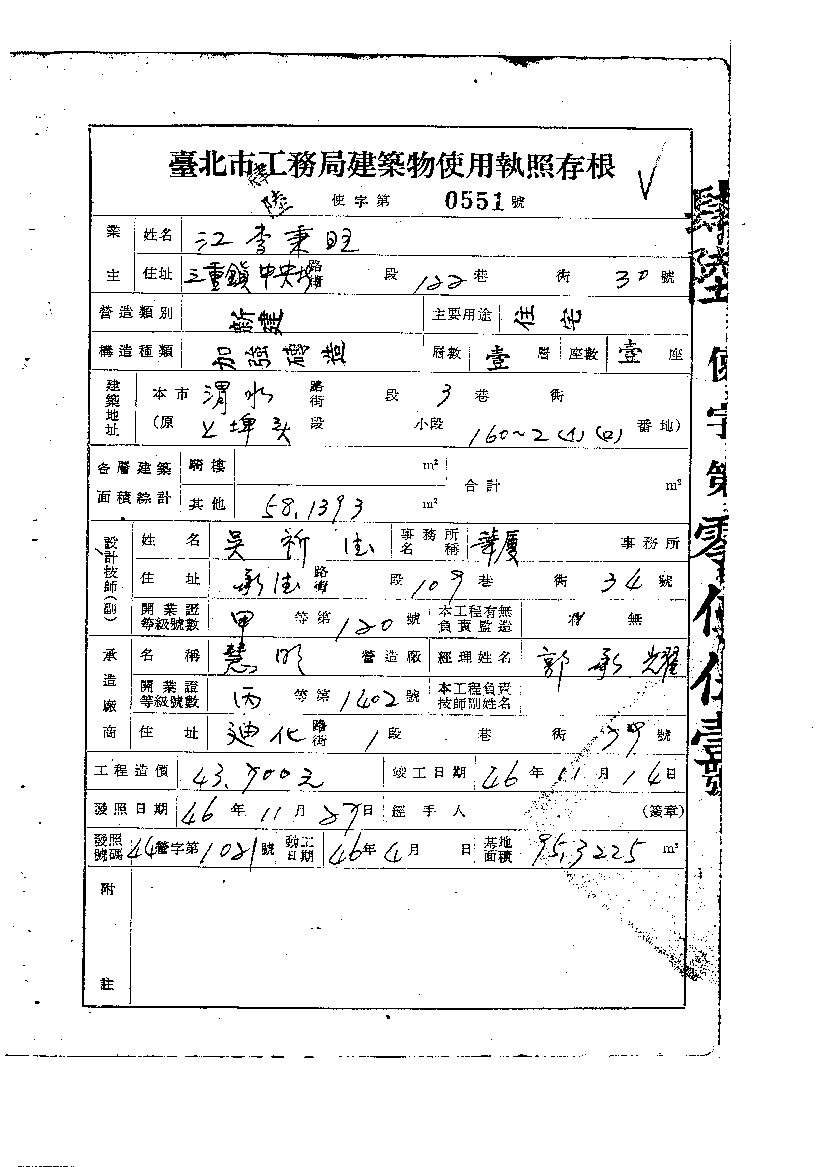 臺北市工務局建築物使用執照存根
肆陸 使字第 0551 號
業主 姓名 江李秉旺
住址 三重鎮中央 路街 段 122 巷 衖 30 號
營造類別 新建 主要用途 住宅
構造種類 加強磚造 層數 壹 層 座數 壹 座
建築地址 本市 渭水 路街 段 3 巷 衖
(原 上埤头 段 小段 160~2(1)(口) 番地)
各層建築面積綜計 騎樓 m² 合計 m²
其他 58.1393 m²
設計技師(副) 姓名 吳新 事務所名稱 華廈 事務所
住址 承德 路街 段 109 巷 衖 34 號
開業證等級號數 甲 等第 120 號 本工程有無負責監造 有 無
承造廠商 名稱 慧明 營造廠 經理姓名 郭承耀
開業證等級號數 丙 等第 1402 號 本工程負責技師副姓名
住址 迪化 路街 1 段 巷 衖 39 號
工程造價 43,700元 竣工日期 46 年 11 月 14 日
發照日期 46 年 11 月 27 日 經手人 (簽章)
發照號碼 44營字第 1021 號 動工日期 46 年 4 月 日 基地面積 95.3225 m²
附註
肆陸使字第零伍伍壹號